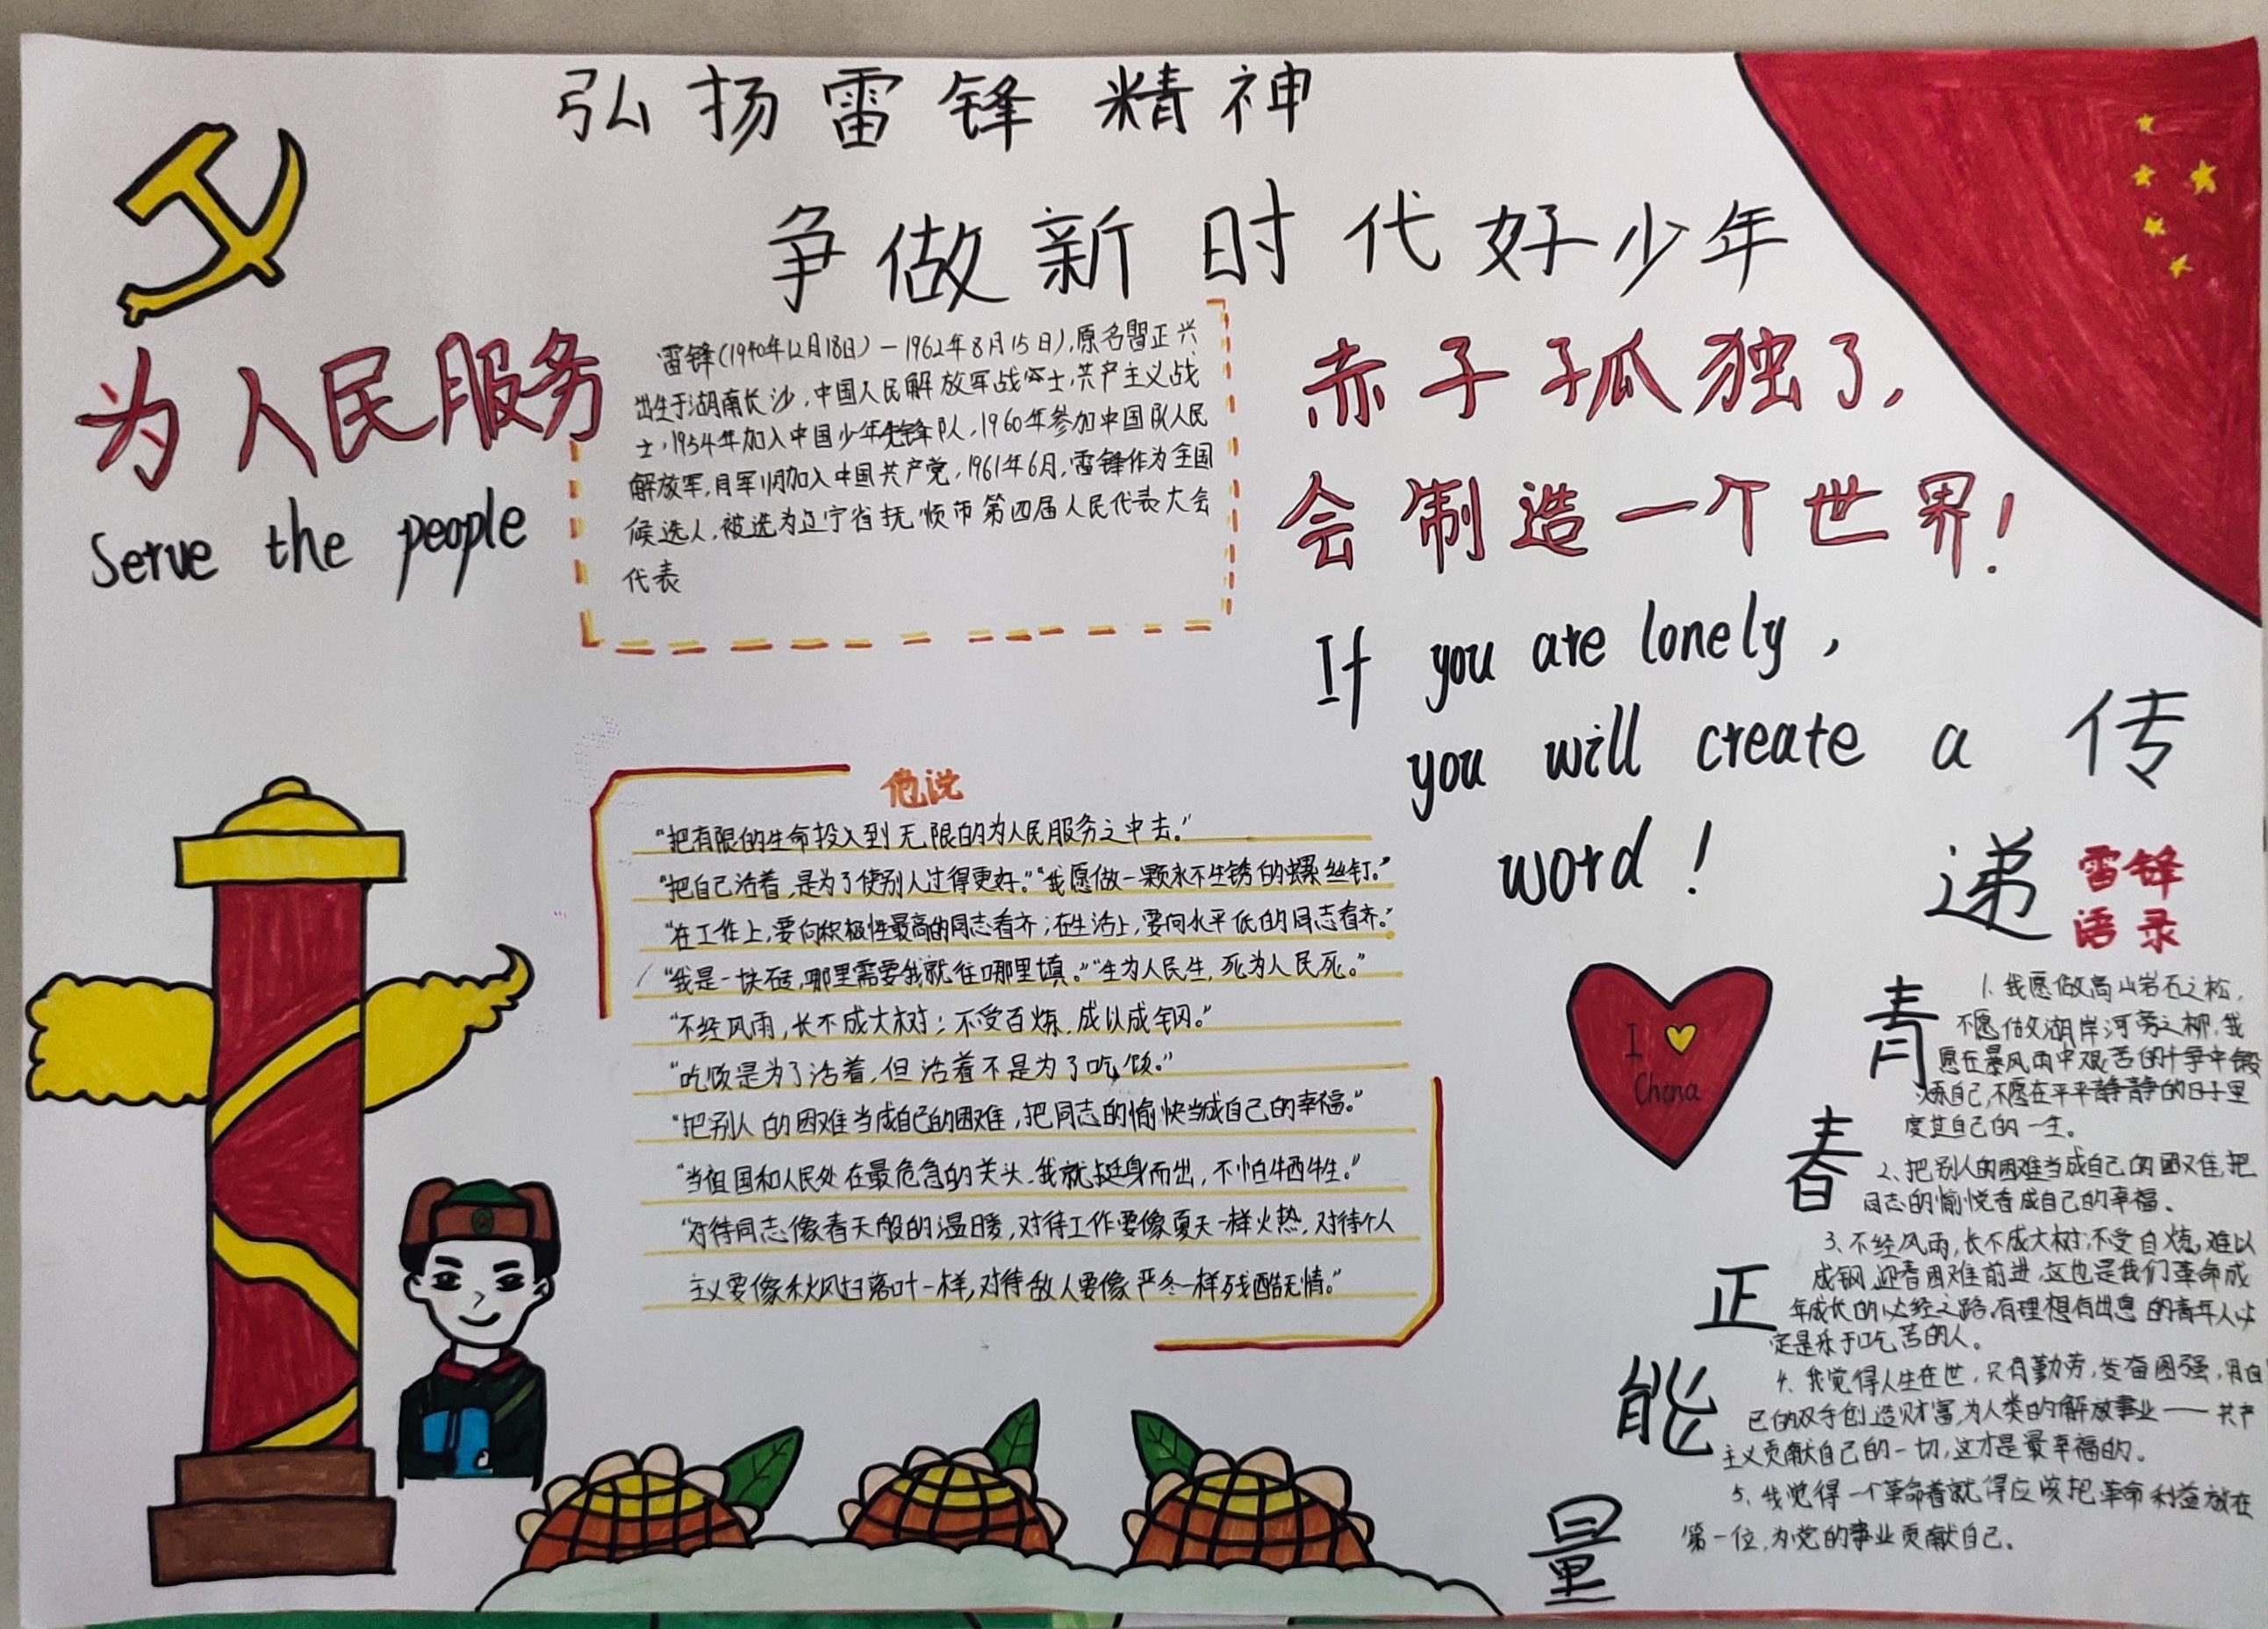 弘扬雷锋精神
争做新时代好少年
为人民服务
Serve the people
雷锋(1940年12月18日)—1962年8月15日),原名雷正兴
出生于湖南长沙,中国人民解放军战士,共产主义战
士,1954年加入中国少年先锋队,1960年参加中国人民
解放军,同年11月加入中国共产党,1961年6月,雷锋作为全国
候选人,被选为辽宁省抚顺市第四届人民代表大会
代表
赤子孤独了,
会制造一个世界!
If you are lonely,
you will create a
word!
他说
“把有限的生命投入到无限的为人民服务之中去。”
“把自己活着,是为了使别人过得更好。”“我愿做一颗永不生锈的螺丝钉。”
“在工作上,要向积极性最高的同志看齐;在生活上,要向水平低的同志看齐。”
“我是一块砖,哪里需要我就往哪里填。”“生为人民生,死为人民死。”
“不经风雨,长不成大树;不受百炼,成以成钢。”
“吃饭是为了活着,但活着不是为了吃饭。”
“把别人的困难当成自己的困难,把同志的愉快当成自己的幸福。”
“当祖国和人民处在最危急的关头,我就挺身而出,不怕牺牲。”
“对待同志像春天般的温暖,对待工作要像夏天一样火热,对待个人
主义要像秋风扫落叶一样,对待敌人要像严冬一样残酷无情。”
传递青春正能量
I
China
雷锋
语录
1、我愿做高山岩石之松,
不愿做湖岸河旁之柳,我
愿在暴风雨中艰苦的斗争中锻
炼自己,不愿在平平静静的日子里
度过自己的一生。
2、把别人的困难当成自己的困难,把
同志的愉悦看成自己的幸福。
3、不经风雨,长不成大树,不受百炼,难以
成钢,迎着困难前进,这也是我们革命成
年成长的必经之路,有理想有出息的青年人必
定是乐于吃苦的人。
4、我觉得人生在世,只有勤劳,发奋图强,用自
己的双手创造财富,为人类的解放事业——共产
主义贡献自己的一切,这才是最幸福的。
5、我觉得一个革命者就得应该把革命利益放在
第一位,为党的事业贡献自己。